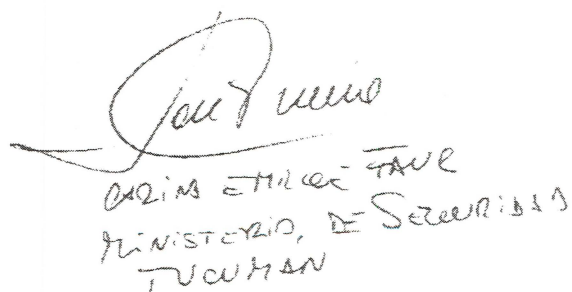 CARINA EMILCE TAUR
MINISTERIO, DE SEGURIDAD
TUCUMAN